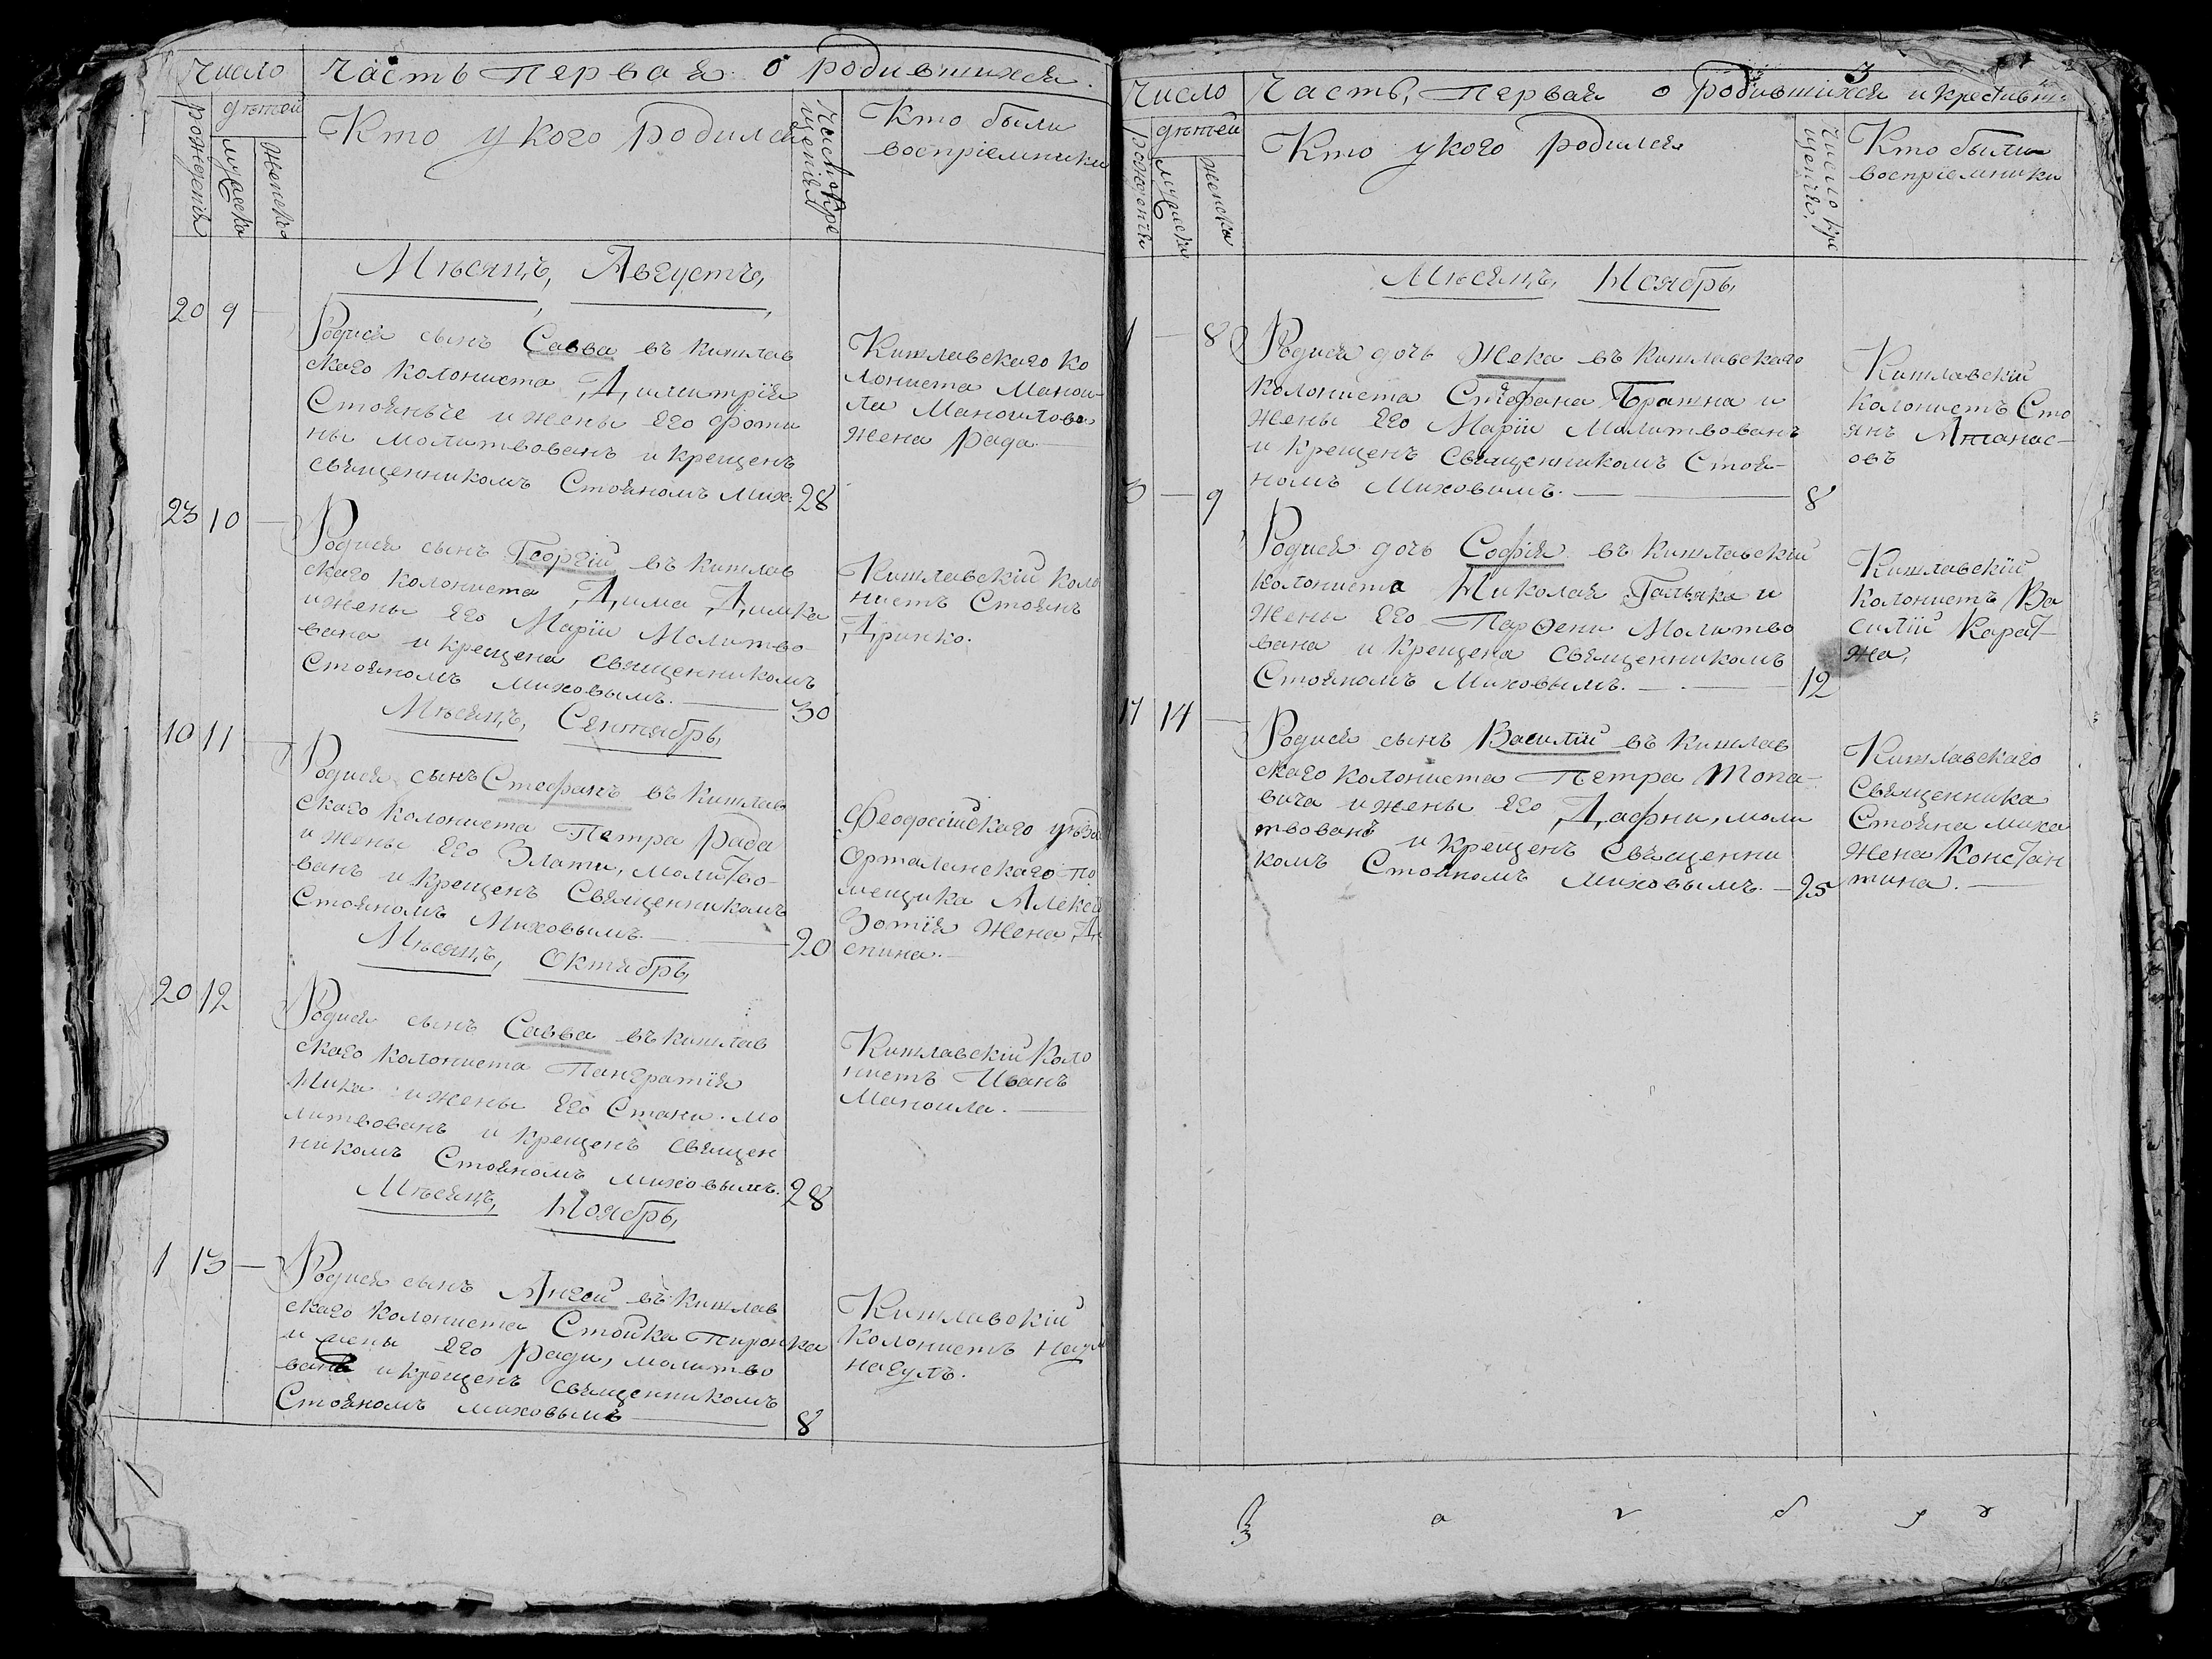 Число
Часть Первая о родившихся.
рожденія
дѣтей
мужска
женскъ
Кто у кого родился
Число кре
щенія
Кто были
воспріемники
Мѣсяцъ, Августъ,
20 9 —
Родися сынъ Савва въ Кишлав
скаго колониста Димитрія
Стояньче и жены его Фоти
ны молитвованъ и крещенъ
священникомъ Стояномъ Мих: 28
Кишлавскаго Ко
лониста Манои-
ли Маноилова
жена Рада. —
23 10 —
Родися сынъ Георгій въ Кишлав
скаго колониста Дима Димка
и жены его Маріи Молитво-
вана и крещена священникомъ
Стояномъ Миховымъ. — 30
Кишлавскій Коло
нистъ Стоянъ
Дринко.
Мѣсяцъ, Сентябрь,
10 11 —
Родися сынъ Стефанъ въ Кишлав
скаго колониста Петра Рада
и жены его Злати, молитво-
ванъ и крещенъ Священникомъ
Стояномъ Миховымъ. — 20
Феодосійскаго уѣзда
Орталанскаго по
мещика Алексѣ
Зотія жена Де
спина. —
Мѣсяцъ, Октябрь,
20 12
Родися сынъ Савва въ Кишлав
скаго колониста Пангратія
Мика и жены его Стани. Мо
литвованъ и крещенъ священ
никомъ Стояномъ Миховымъ. 28
Кишлавскій Коло
нистъ Иванъ
Маноила. —
Мѣсяцъ, Ноябрь,
1 13 —
Родися сынъ Ангей въ Кишлав
скаго колониста Стойка Пиронка
и жены его Ради, молитво
ванъ и крещенъ священникомъ
Стояномъ Миховымъ — 8
Кишлавскій
Колонистъ Наум
Нагулъ.
3
Число
Часть, Первая о родившихся и крестивш:
рожденія
дѣтей
мужска
женска
Кто у кого родился
Число кре
щенія,
Кто были
воспріемники
Мѣсяцъ, Ноябрь,
1 — 8
Родися дочь Жека въ Кишлавскаго
колониста Стефана Братна и
жены его Маріи Молитвованъ
и крещенъ священникомъ Стоя-
номъ Миховымъ. — 8
Кишлавскій
колонистъ Сто
янъ Атанас-
овъ
3 — 9
Родися дочь Софія въ Кишлавскій
колониста Николая Гальяка и
жены его Парѳени Молитво
вана и крещена священникомъ
Стояномъ Миховымъ. — 12
Кишлавскій
Колонистъ Ва
силій Карат
жа,
17 14 —
Родися сынъ Василій въ Кишлав
скаго колониста Петра Топа-
вича и жены его Дафни, моли
твованъ и крещенъ Священни
комъ Стояномъ Миховымъ. — 25
Кишлавскаго
Священника
Стояна Миха
жена Констан
тина. —